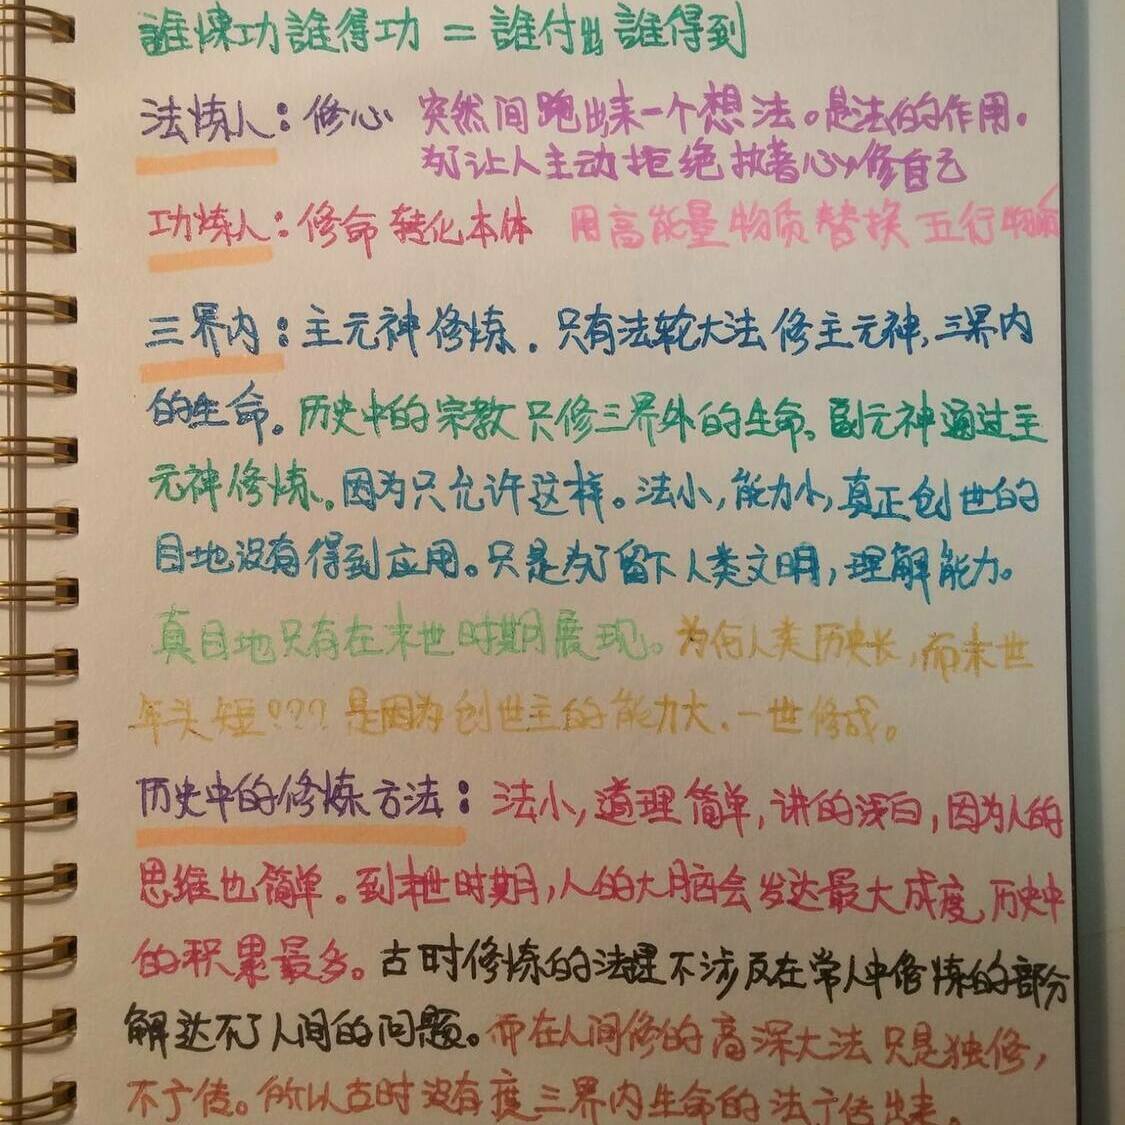 誰煉功誰得功 = 誰付出 誰得到
法炼人：修心 突然间跑出来一个想法。是法的作用。
为了让人主动拒绝执著心，修自己
功炼人：修命 转化本体 用高能量物质替换 五行物质
三界内：主元神修炼．只有法轮大法修主元神，三界内
的生命。历史中的宗教只修三界外的生命。副元神通过主
元神修炼。因为只允许这样。法小，能力小，真正创世的
目地没有得到应用。只是为了留下人类文明，理解能力。
真目地只有在末世时期展现。为何人类历史长，而末世
年头短？？？是因为创世主的能力大．一世修成。
历史中的修炼方法：法小，道理简单，讲的浅白，因为人的
思维也简单。到末世时期，人的大脑会发达最大成度，历史中
的积累最多。古时修炼的法理不涉及在常人中修炼的部分
解达不了人间的问题。而在人间修的高深大法只是独修，
不广传。所以古时没有度三界内生命的法广传出来．